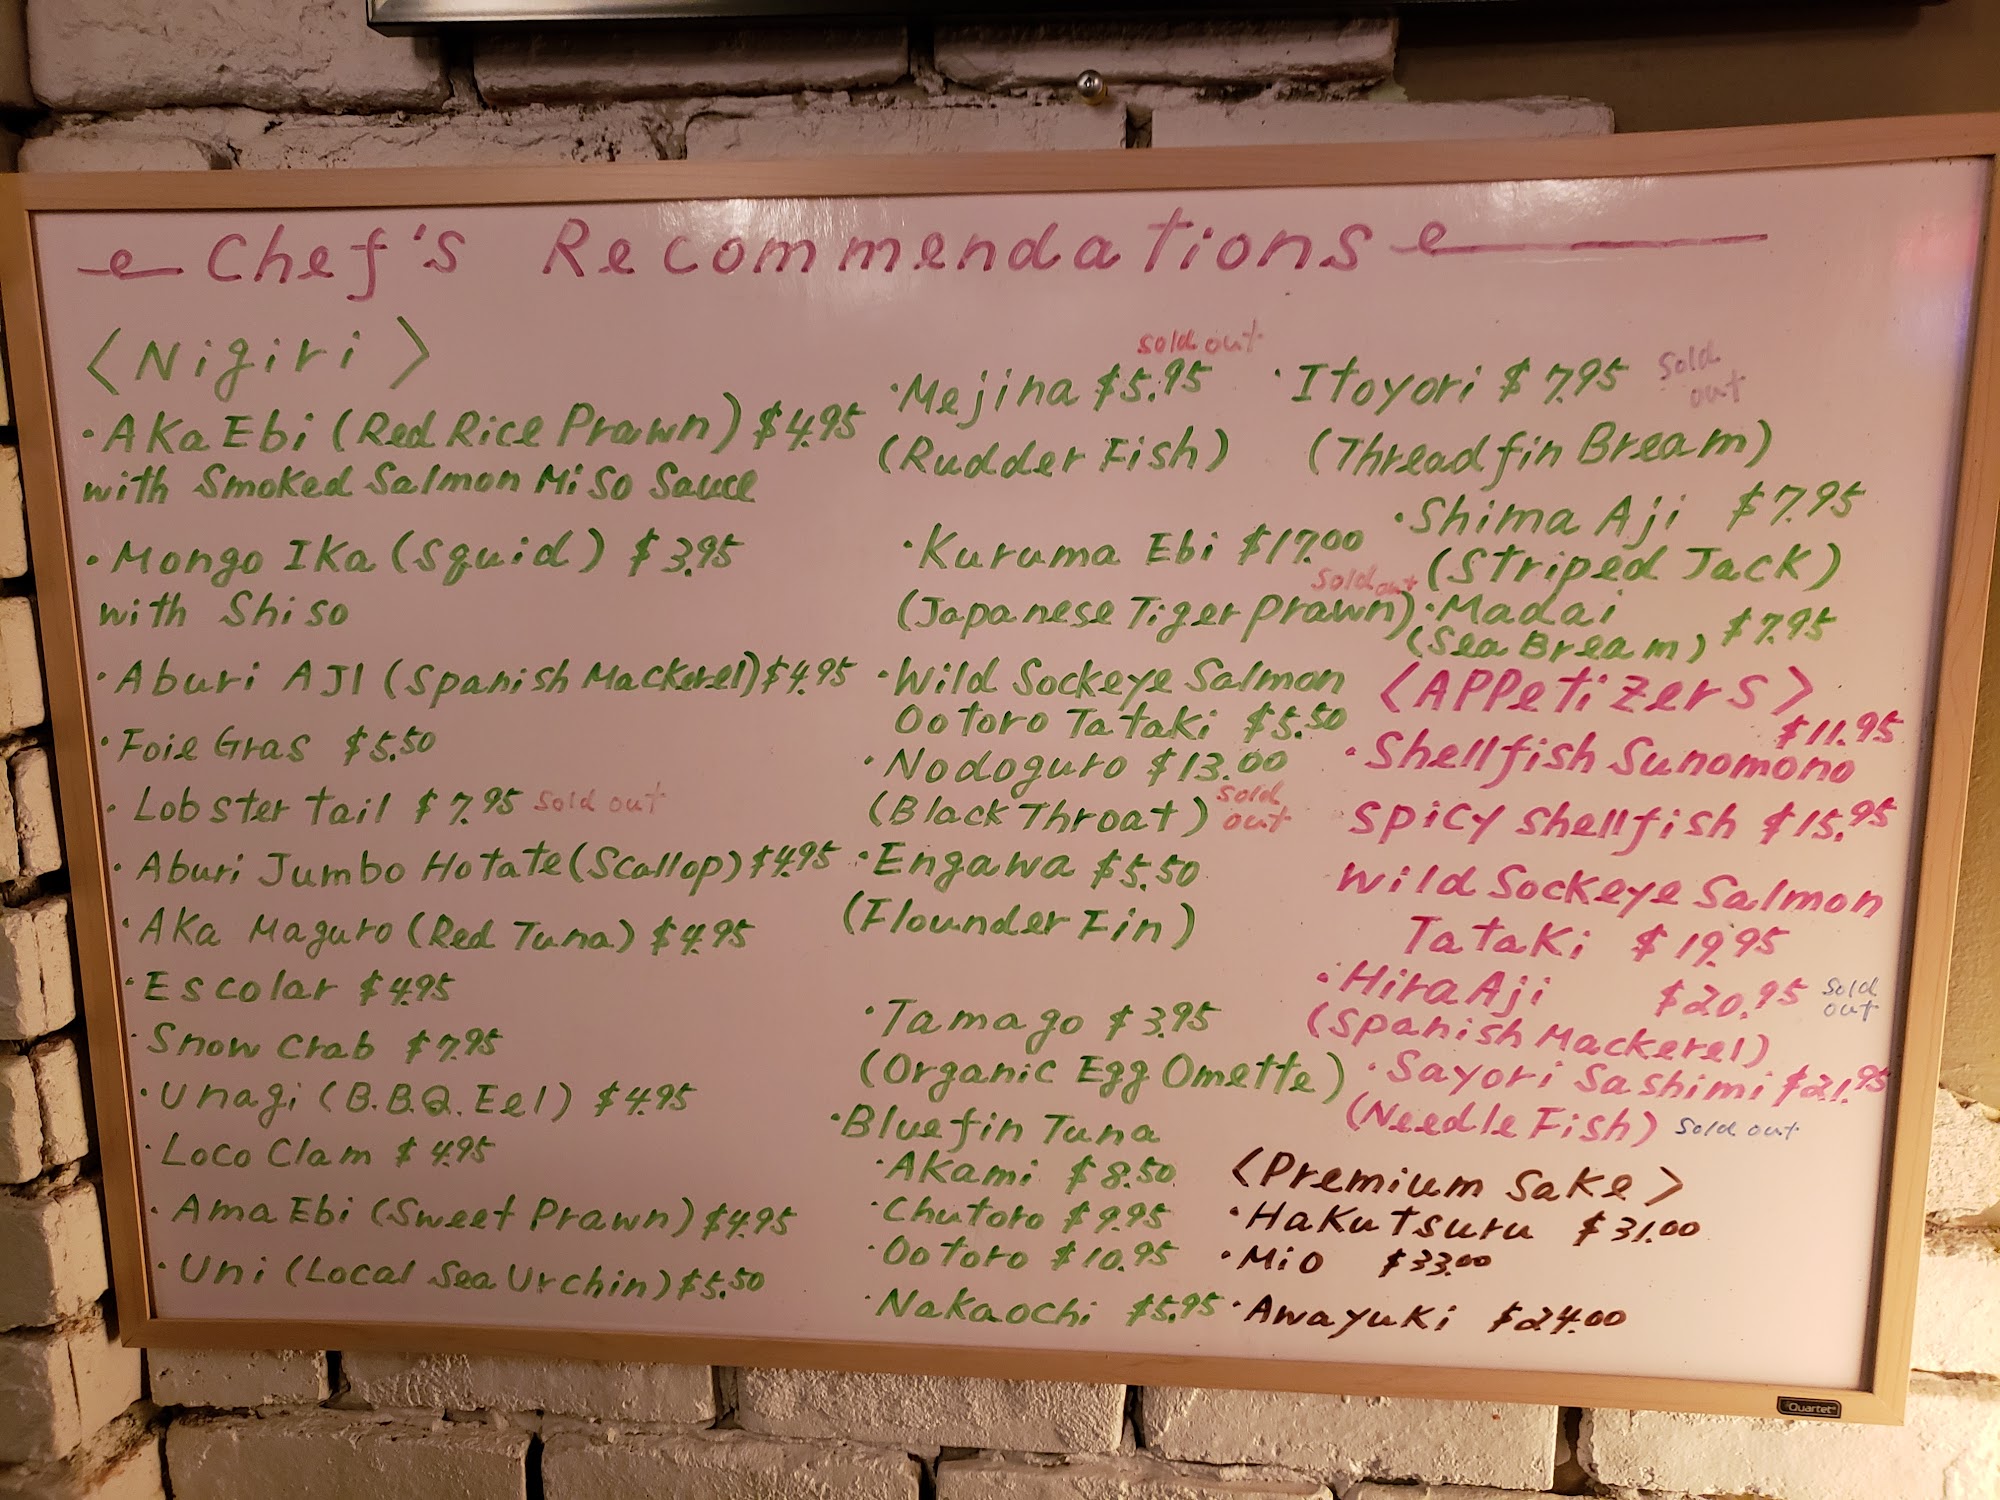 Chef's Recommendations
<Nigiri>
· Aka Ebi (Red Rice Prawn) $4.95
with Smoked Salmon Miso Sauce
· Mongo Ika (Squid) $3.95
with Shiso
· Aburi AJI (Spanish Mackerel) $4.95
· Foie Gras $5.50
· Lobster tail $7.95 sold out
· Aburi Jumbo Hotate (Scallop) $4.95
· Aka Maguro (Red Tuna) $4.95
· Escolar $4.95
· Snow Crab $7.95
· Unagi (B.B.Q. Eel) $4.95
· Loco Clam $4.95
· Ama Ebi (Sweet Prawn) $4.95
· Uni (Local Sea Urchin) $5.50
sold out
· Mejina $5.95
(Rudder Fish)
· Kuruma Ebi $17.00
sold out
(Japanese Tiger Prawn)
· Wild Sockeye Salmon
Ootoro Tataki $5.50
· Nodoguro $13.00
(Black Throat) sold out
· Engawa $5.50
(Flounder Fin)
· Tamago $3.95
(Organic Egg Omette)
· Bluefin Tuna
· Akami $8.50
· Chutoro $9.95
· Ootoro $10.95
· Nakaochi $5.95
· Itoyori $7.95 sold out
(Threadfin Bream)
· Shima Aji $7.95
(Striped Jack)
· Madai
(Sea Bream) $7.95
<Appetizers>
$11.95
· Shellfish Sunomono
Spicy shellfish $15.95
Wild Sockeye Salmon
Tataki $19.95
· Hira Aji $20.95 sold out
(Spanish Mackerel)
· Sayori Sashimi $21.95
(Needle Fish) sold out
<Premium Sake>
· Hakutsuru $31.00
· Mio $33.00
· Awayuki $24.00
Quartet